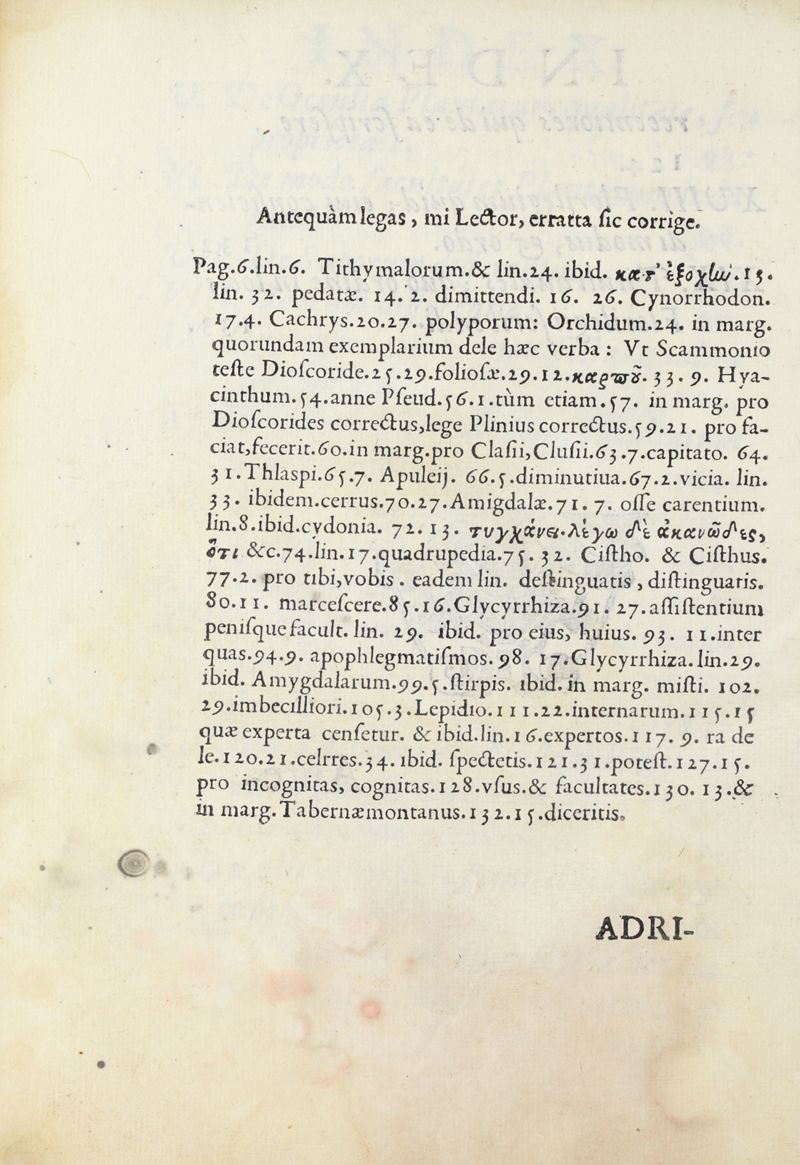 Antequàm legas, mi Lector, erratta ſic corrige.
Pag.6.lin.6. Tithymalorum.& lin.24. ibid. κατ' ἐξοχὼ.15.
lin. 32. pedatæ. 14. 2. dimittendi. 16. 26. Cynorrhodon.
17.4. Cachrys.20.27. polyporum: Orchidum.24. in marg.
quorundam exemplarium dele hæc verba : Vt Scammonio
teſte Dioſcoride.25.29.folioſæ.29.12.καρπȣ͂. 33. 9. Hya-
cinthum.54.anne Pſeud.56.1.tùm etiam.57. in marg. pro
Dioſcorides correctus,lege Plinius correctus.59.21. pro fa-
ciat,fecerit.60.in marg.pro Claſii,Cluſii.63.7.capitato. 64.
31.Thlaspi.65.7. Apuleij. 66.5.diminutiua.67.2.vicia. lin.
33. ibidem.cerrus.70.27.Amigdalæ.71. 7. oſſe carentium.
lin.8.ibid.cydonia. 72. 13. τυγχάνει.λέγω δὲ ἀκανῶδες,
ὅτι &c.74.lin.17.quadrupedia.75. 32. Ciſtho. & Ciſthus.
77.2. pro tibi,vobis . eadem lin. deſtinguatis , diſtinguatis.
80.11. marceſcere.85.16.Glycyrrhiza.91. 27.aſſiſtentium
peniſque facult. lin. 29. ibid. pro eius, huius. 93. 11.inter
quas.94.9. apophlegmatiſmos. 98. 17.Glycyrrhiza.lin.29.
ibid. Amygdalarum.99.5.ſtirpis. ibid. in marg. miſti. 102.
29.imbecilliori.105.3.Lepidio.111.22.internarum.115.15
quæ experta cenſetur. & ibid.lin.16.expertos.117. 9. ra de
le.120.21.celrres.34. ibid. ſpectetis.121.31.poteſt.127.15.
pro incognitas, cognitas.128.vſus.& facultates.130. 13.&
in marg. Tabernæmontanus.132.15.diceritis.
ADRI-